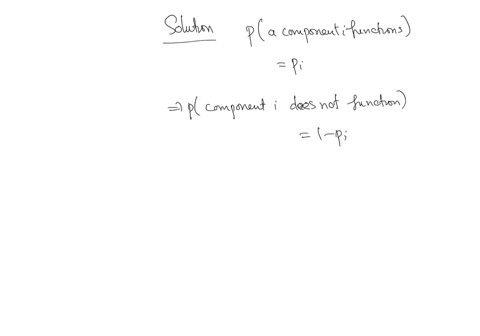 Solution P( a component i functions)
= Pi
⇒ P( component i does not function)
= 1-Pi